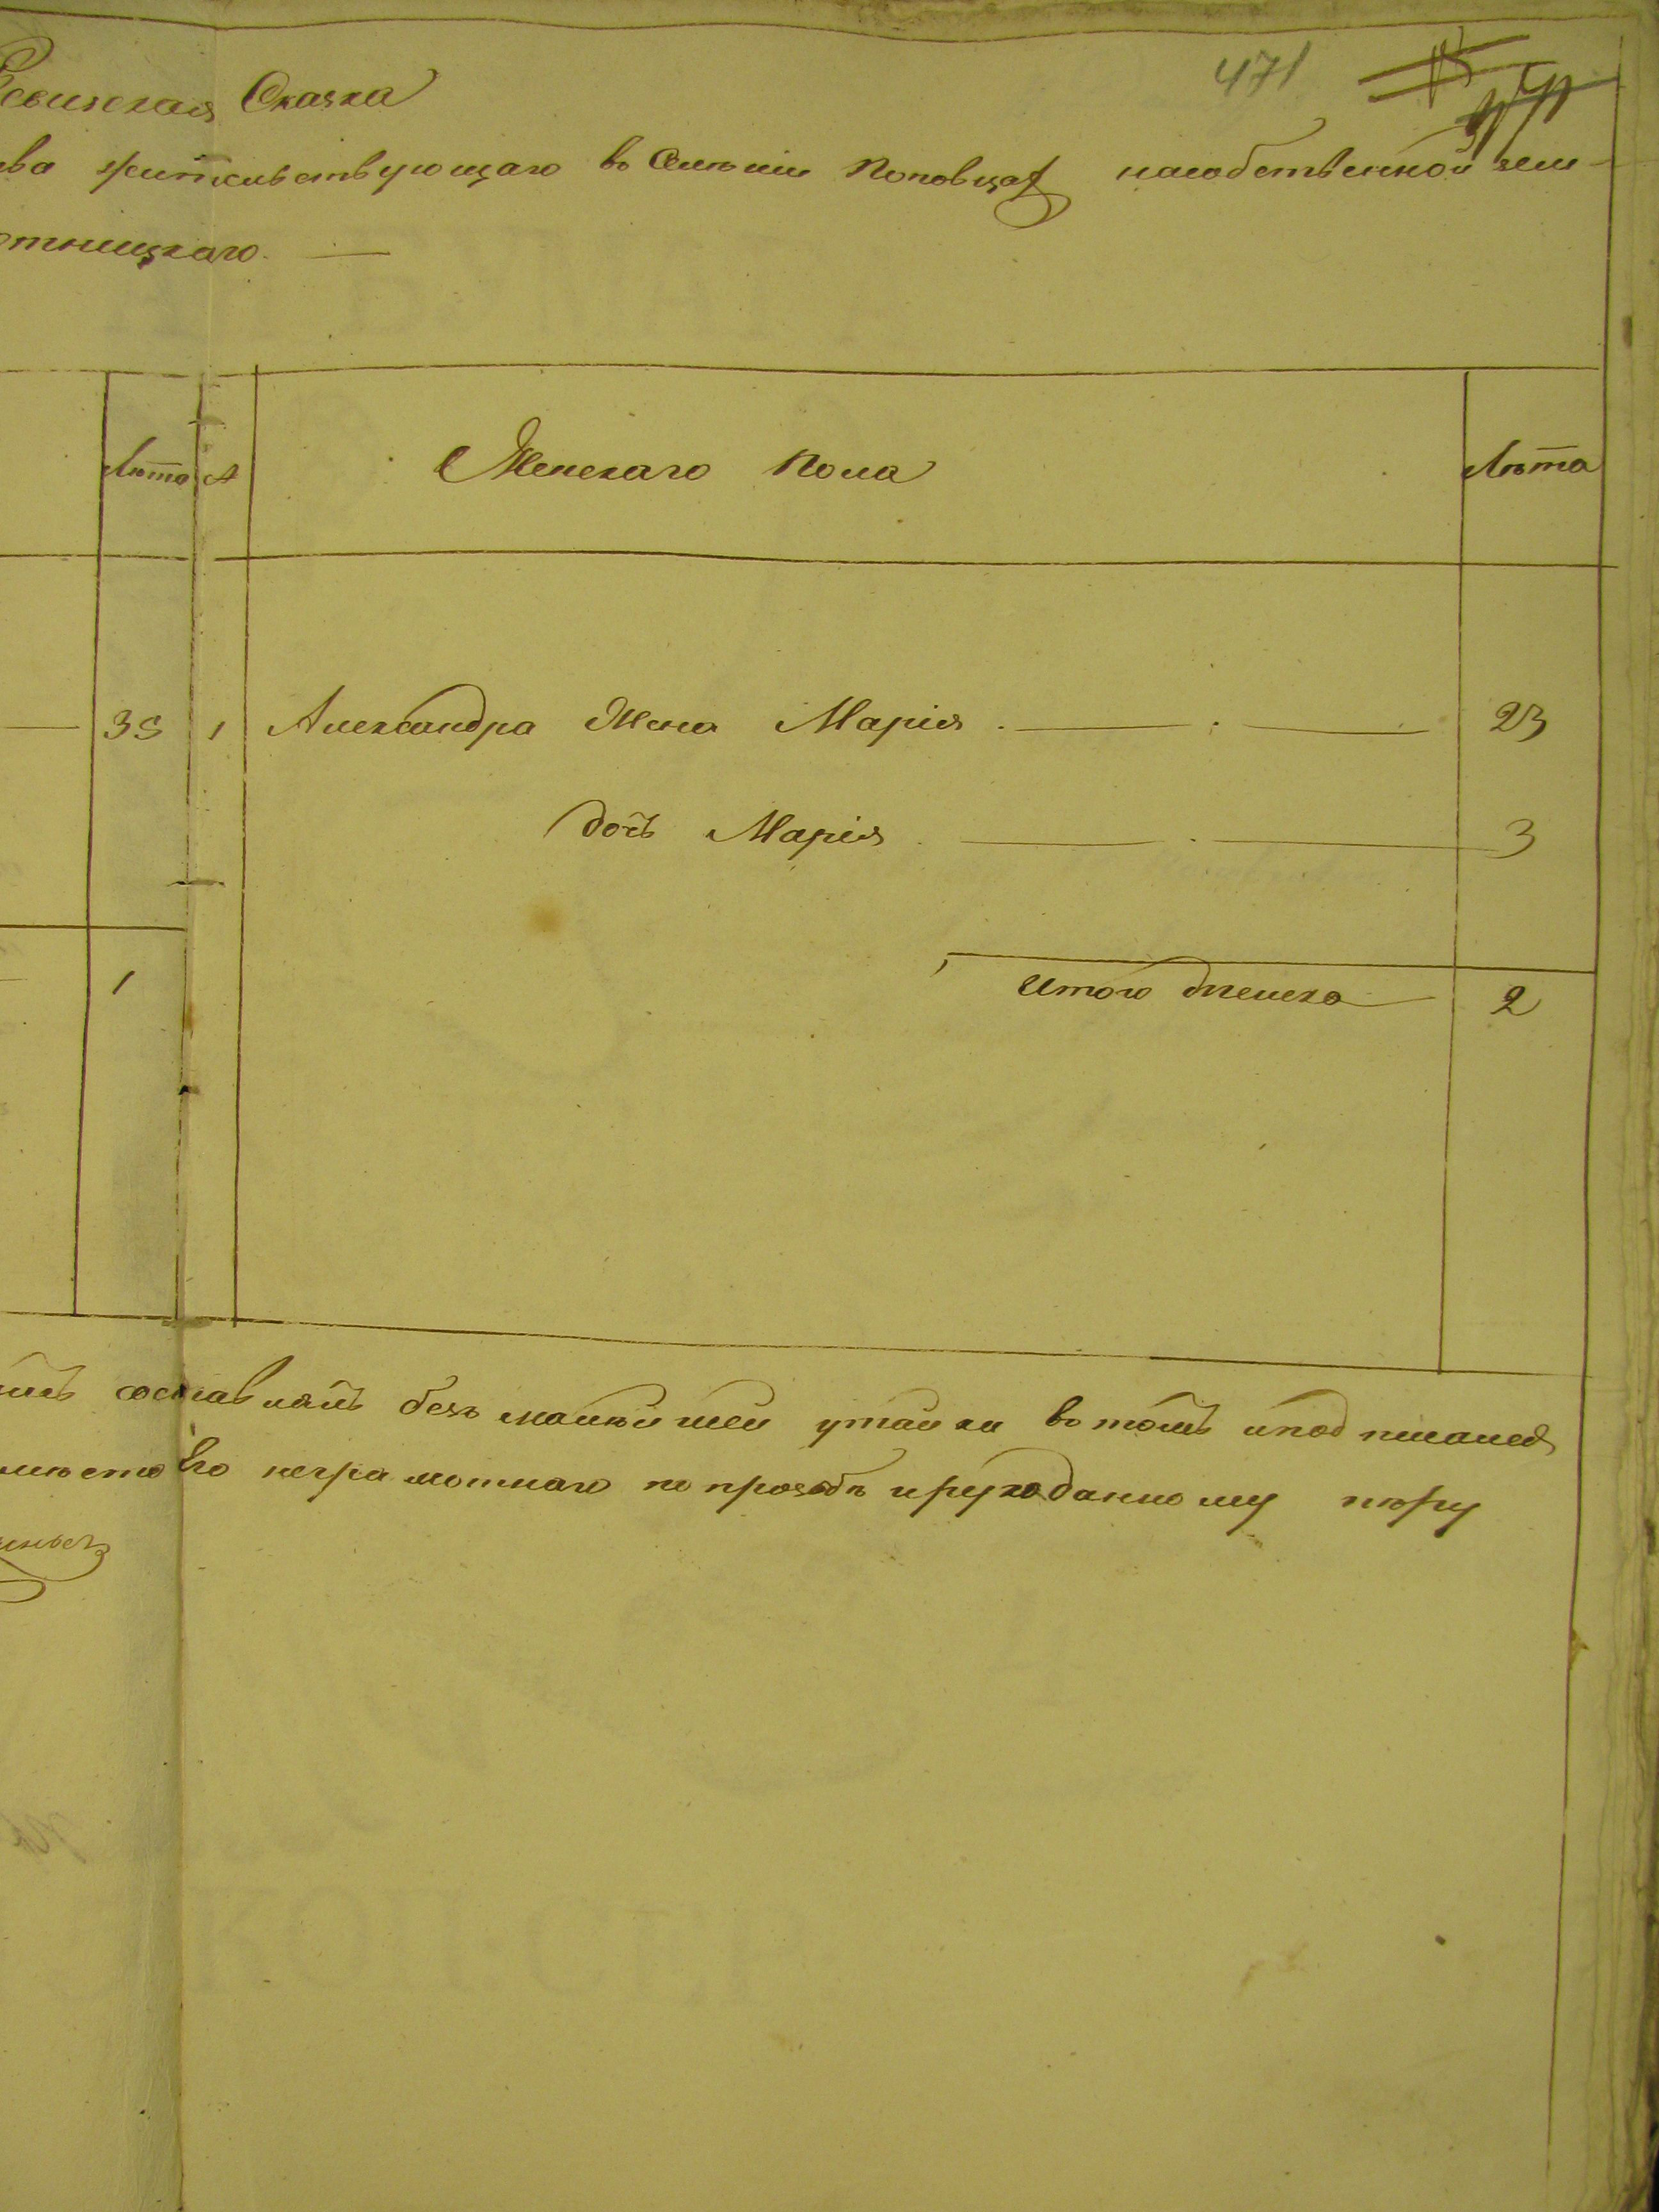 471
Ревизская Сказка
ва жительствующаго въ Селенiи Поповцах насобственной зем-
отницкаго. —
Лѣта Женскаго Пола Лѣта
35 1 Александра Жена Марiя. — 23
дочь Марiя. — 3
1 Итого женска 2
составлять безъ малѣйшей утайки въ томъ иподписался
вмѣсто Его неграмотнаго по прозбѣ ирукоданному перу